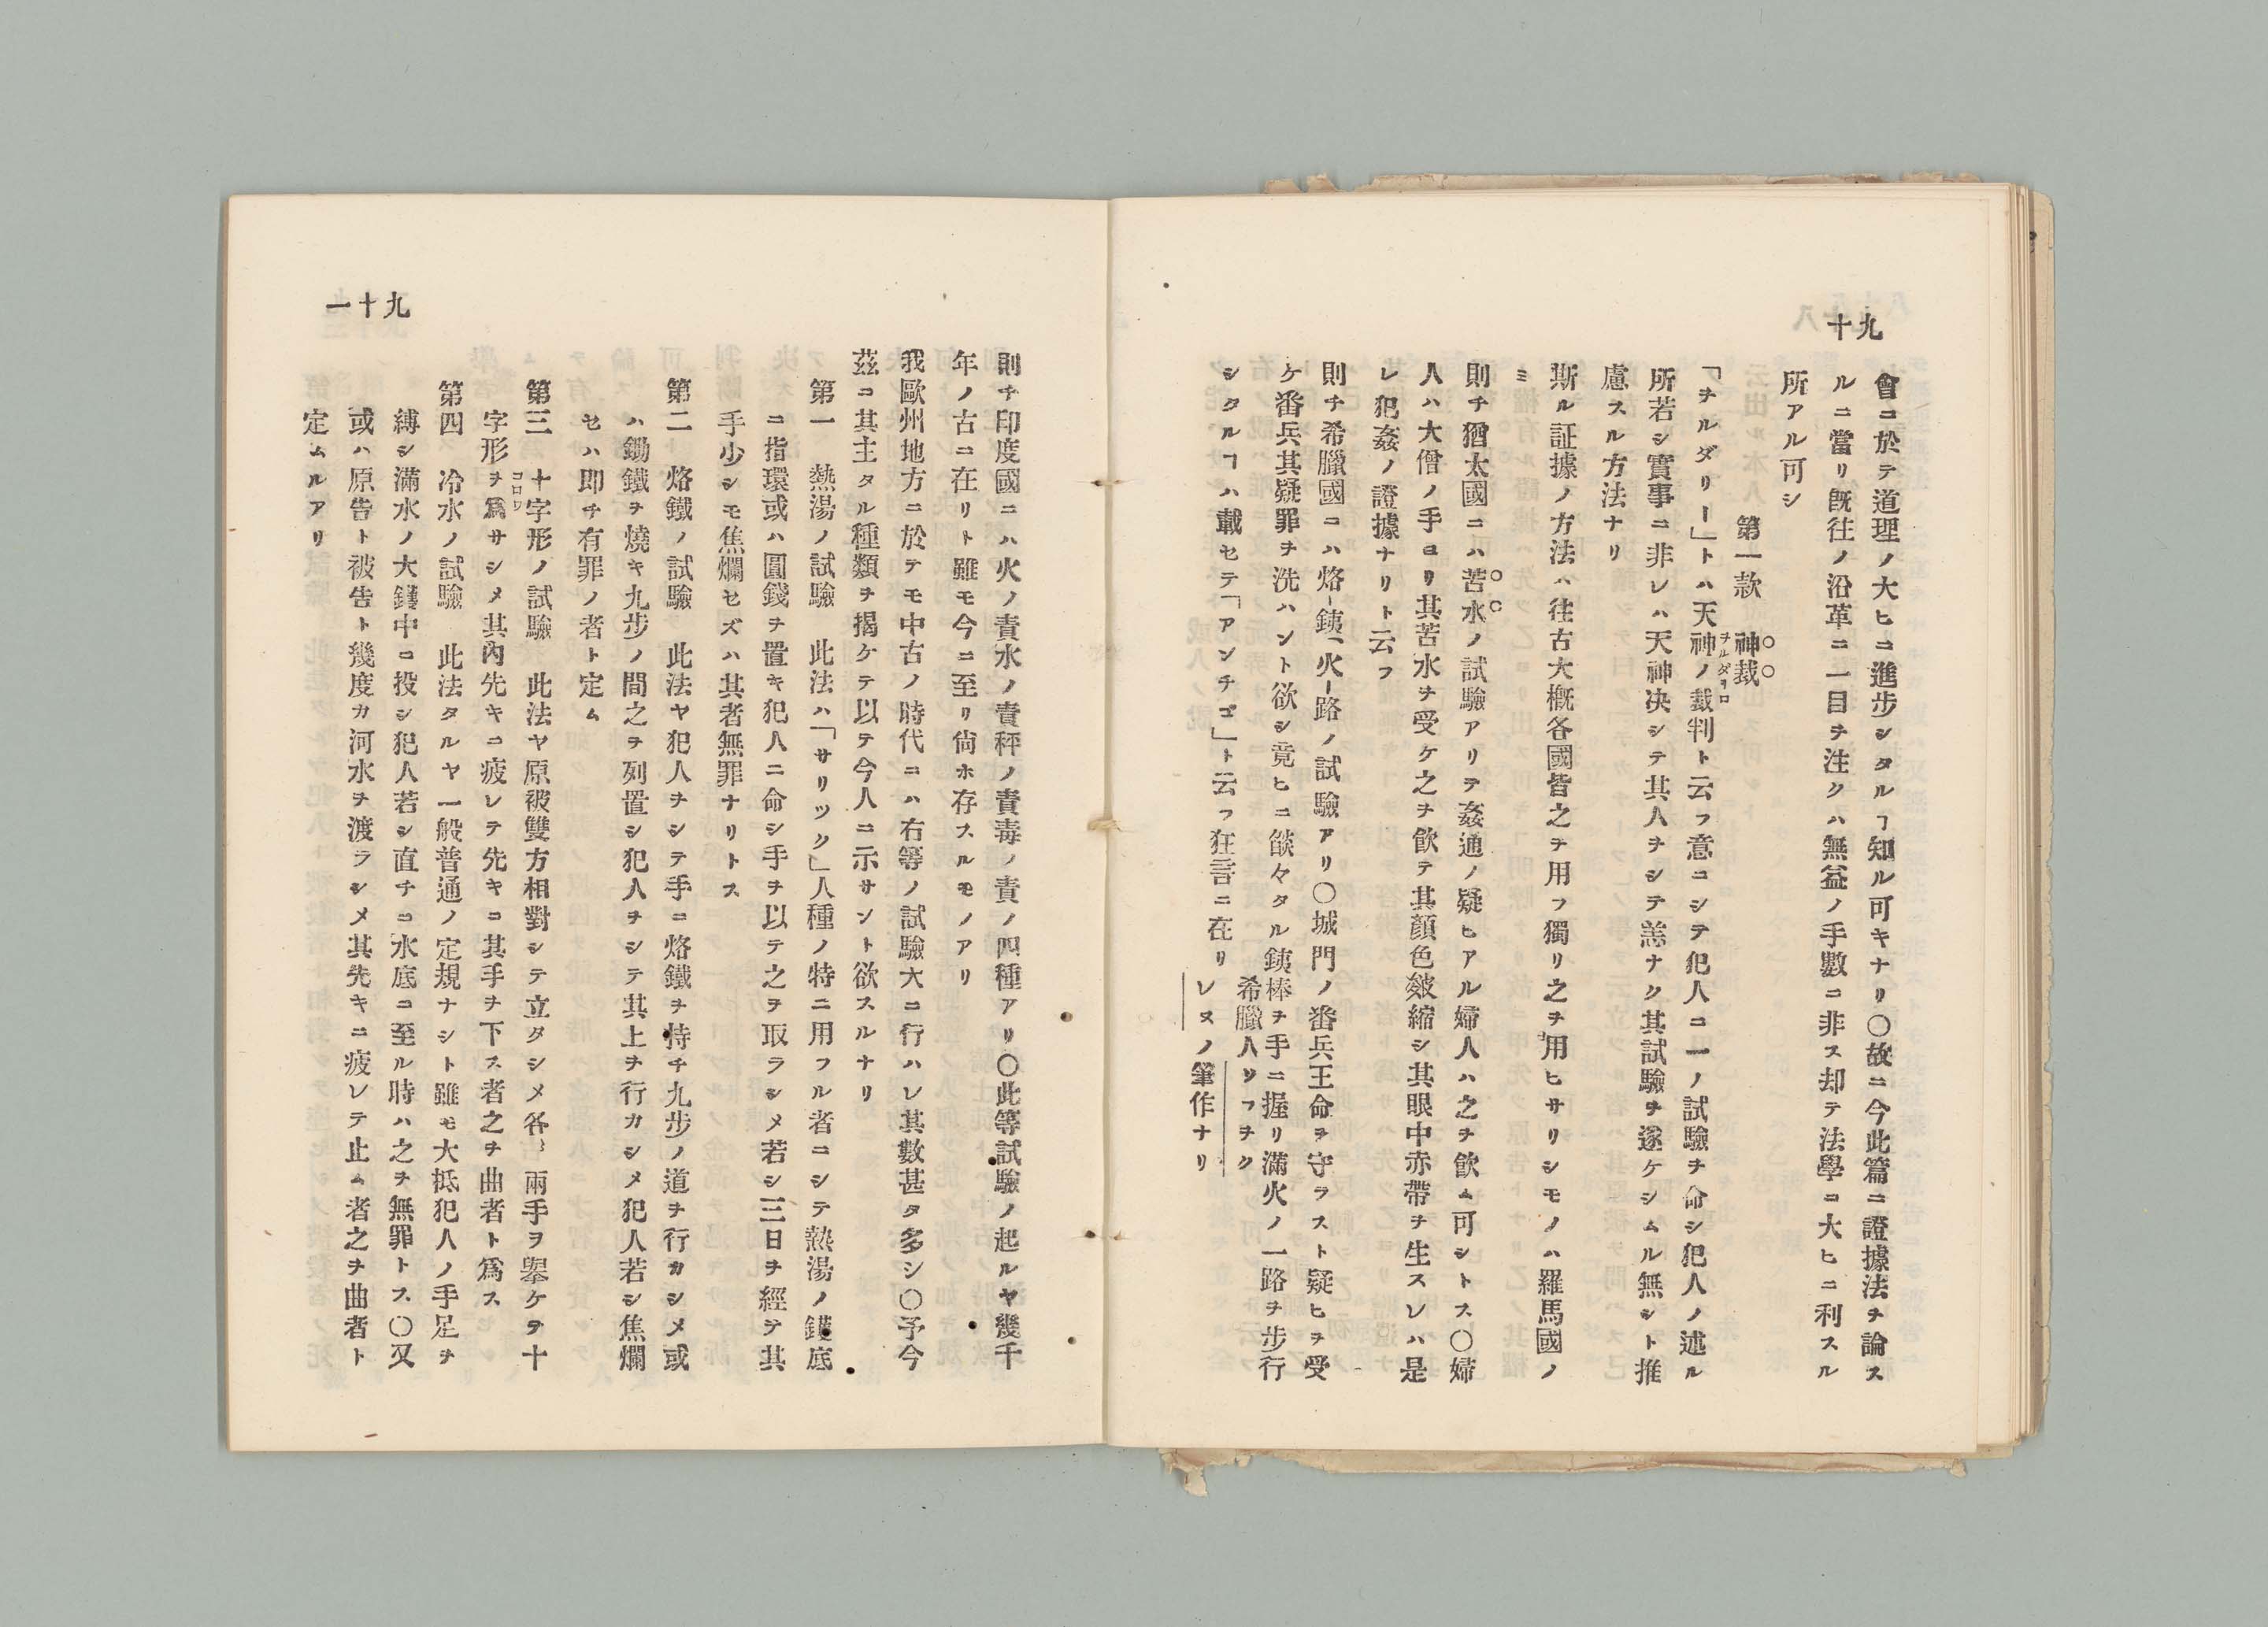 九十
會ニ於テ道理ノ大ヒニ進步シタルヿ知ル可キナリ〇故ニ今此篇ニ證據法ヲ論ス
ルニ當リ既往ノ沿革ニ一目ヲ注クハ無益ノ手數ニ非ス却テ法學ニ大ヒニ利スル
所アル可シ
第一款 神裁
「ヲルダリー」トハ天神ノ裁判ト云フ意ニシテ犯人ニ一ノ試驗ヲ命シ犯人ノ述ル
所若シ實事ニ非レハ天神决シテ其人ヲシテ恙ナク其試驗ヲ遂ケシムル無シト推
慮スル方法ナリ
斯ル証據ノ方法ハ往古大概各國皆之ヲ用フ獨リ之ヲ用ヒサリシモノハ羅馬國ノ
ミ
則チ猶太國ニハ苦水ノ試驗アリテ姦通ノ疑ヒアル婦人ハ之ヲ飮ム可シトス〇婦
人ハ大僧ノ手ヨリ其苦水ヲ受ケ之ヲ飮テ其顏色皺縮シ其眼中赤帶ヲ生スレハ是
レ犯姦ノ證據ナリト云フ
則チ希臘國ニハ烙銕火路ノ試驗アリ〇城門ノ番兵王命ヲ守ラスト疑ヒヲ受
ケ番兵其疑罪ヲ洗ハント欲シ竟ヒニ燄々タル銕棒ヲ手ニ握リ滿火ノ一路ヲ步行
シタルヿハ載セテ「アンチゴ」ト云フ狂言ニ在リ
希臘人ソフヲク
レスノ筆作ナリ
九十一
則チ印度國ニハ火ノ責水ノ責秤ノ責毒ノ責ノ四種アリ〇此等試驗ノ起ルヤ幾千
年ノ古ニ在リト雖モ今ニ至リ尙ホ存スルモノアリ
我歐州地方ニ於テモ中古ノ時代ニハ右等ノ試驗大ニ行ハレ其數甚タ多シ〇予今
茲ニ其主タル種類ヲ揭ケテ以テ今人ニ示サント欲スルナリ
第一 熱湯ノ試驗 此法ハ「サリツク」人種ノ特ニ用フル者ニシテ熱湯ノ鑊底
ニ指環或ハ圓錢ヲ置キ犯人ニ命シ手ヲ以テ之ヲ取ラシメ若シ三日ヲ經テ其
手少シモ焦爛セズハ其者無罪ナリトス
第二 烙鐵ノ試驗 此法ヤ犯人ヲシテ手ニ烙鐵ヲ持チ九步ノ道ヲ行カシメ或
ハ鋤鐵ヲ燒キ九步ノ間之ヲ列置シ犯人ヲシテ其上ヲ行カシメ犯人若シ焦爛
セハ即チ有罪ノ者ト定ム
第三 十字形ノ試驗 此法ヤ原被雙方相對シテ立タシメ各〻兩手ヲ擧ケテ十
字形ヲ爲サシメ其內先キニ疲レテ先キニ其手ヲ下ス者之ヲ曲者ト爲ス
第四 冷水ノ試驗 此法タルヤ一般普通ノ定規ナシト雖モ大抵犯人ノ手足ヲ
縛シ滿水ノ大鑊中ニ投シ犯人若シ直チニ水底ニ至ル時ハ之ヲ無罪トス〇又
或ハ原告ト被告ト幾度カ河水ヲ渡ラシメ其先キニ疲レテ止ム者之ヲ曲者ト
定ムルアリ